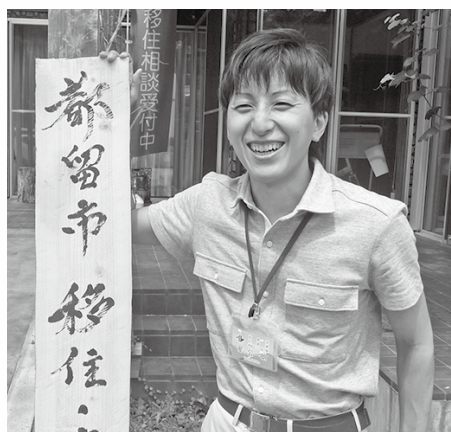 移住相談受付中
都留市移住